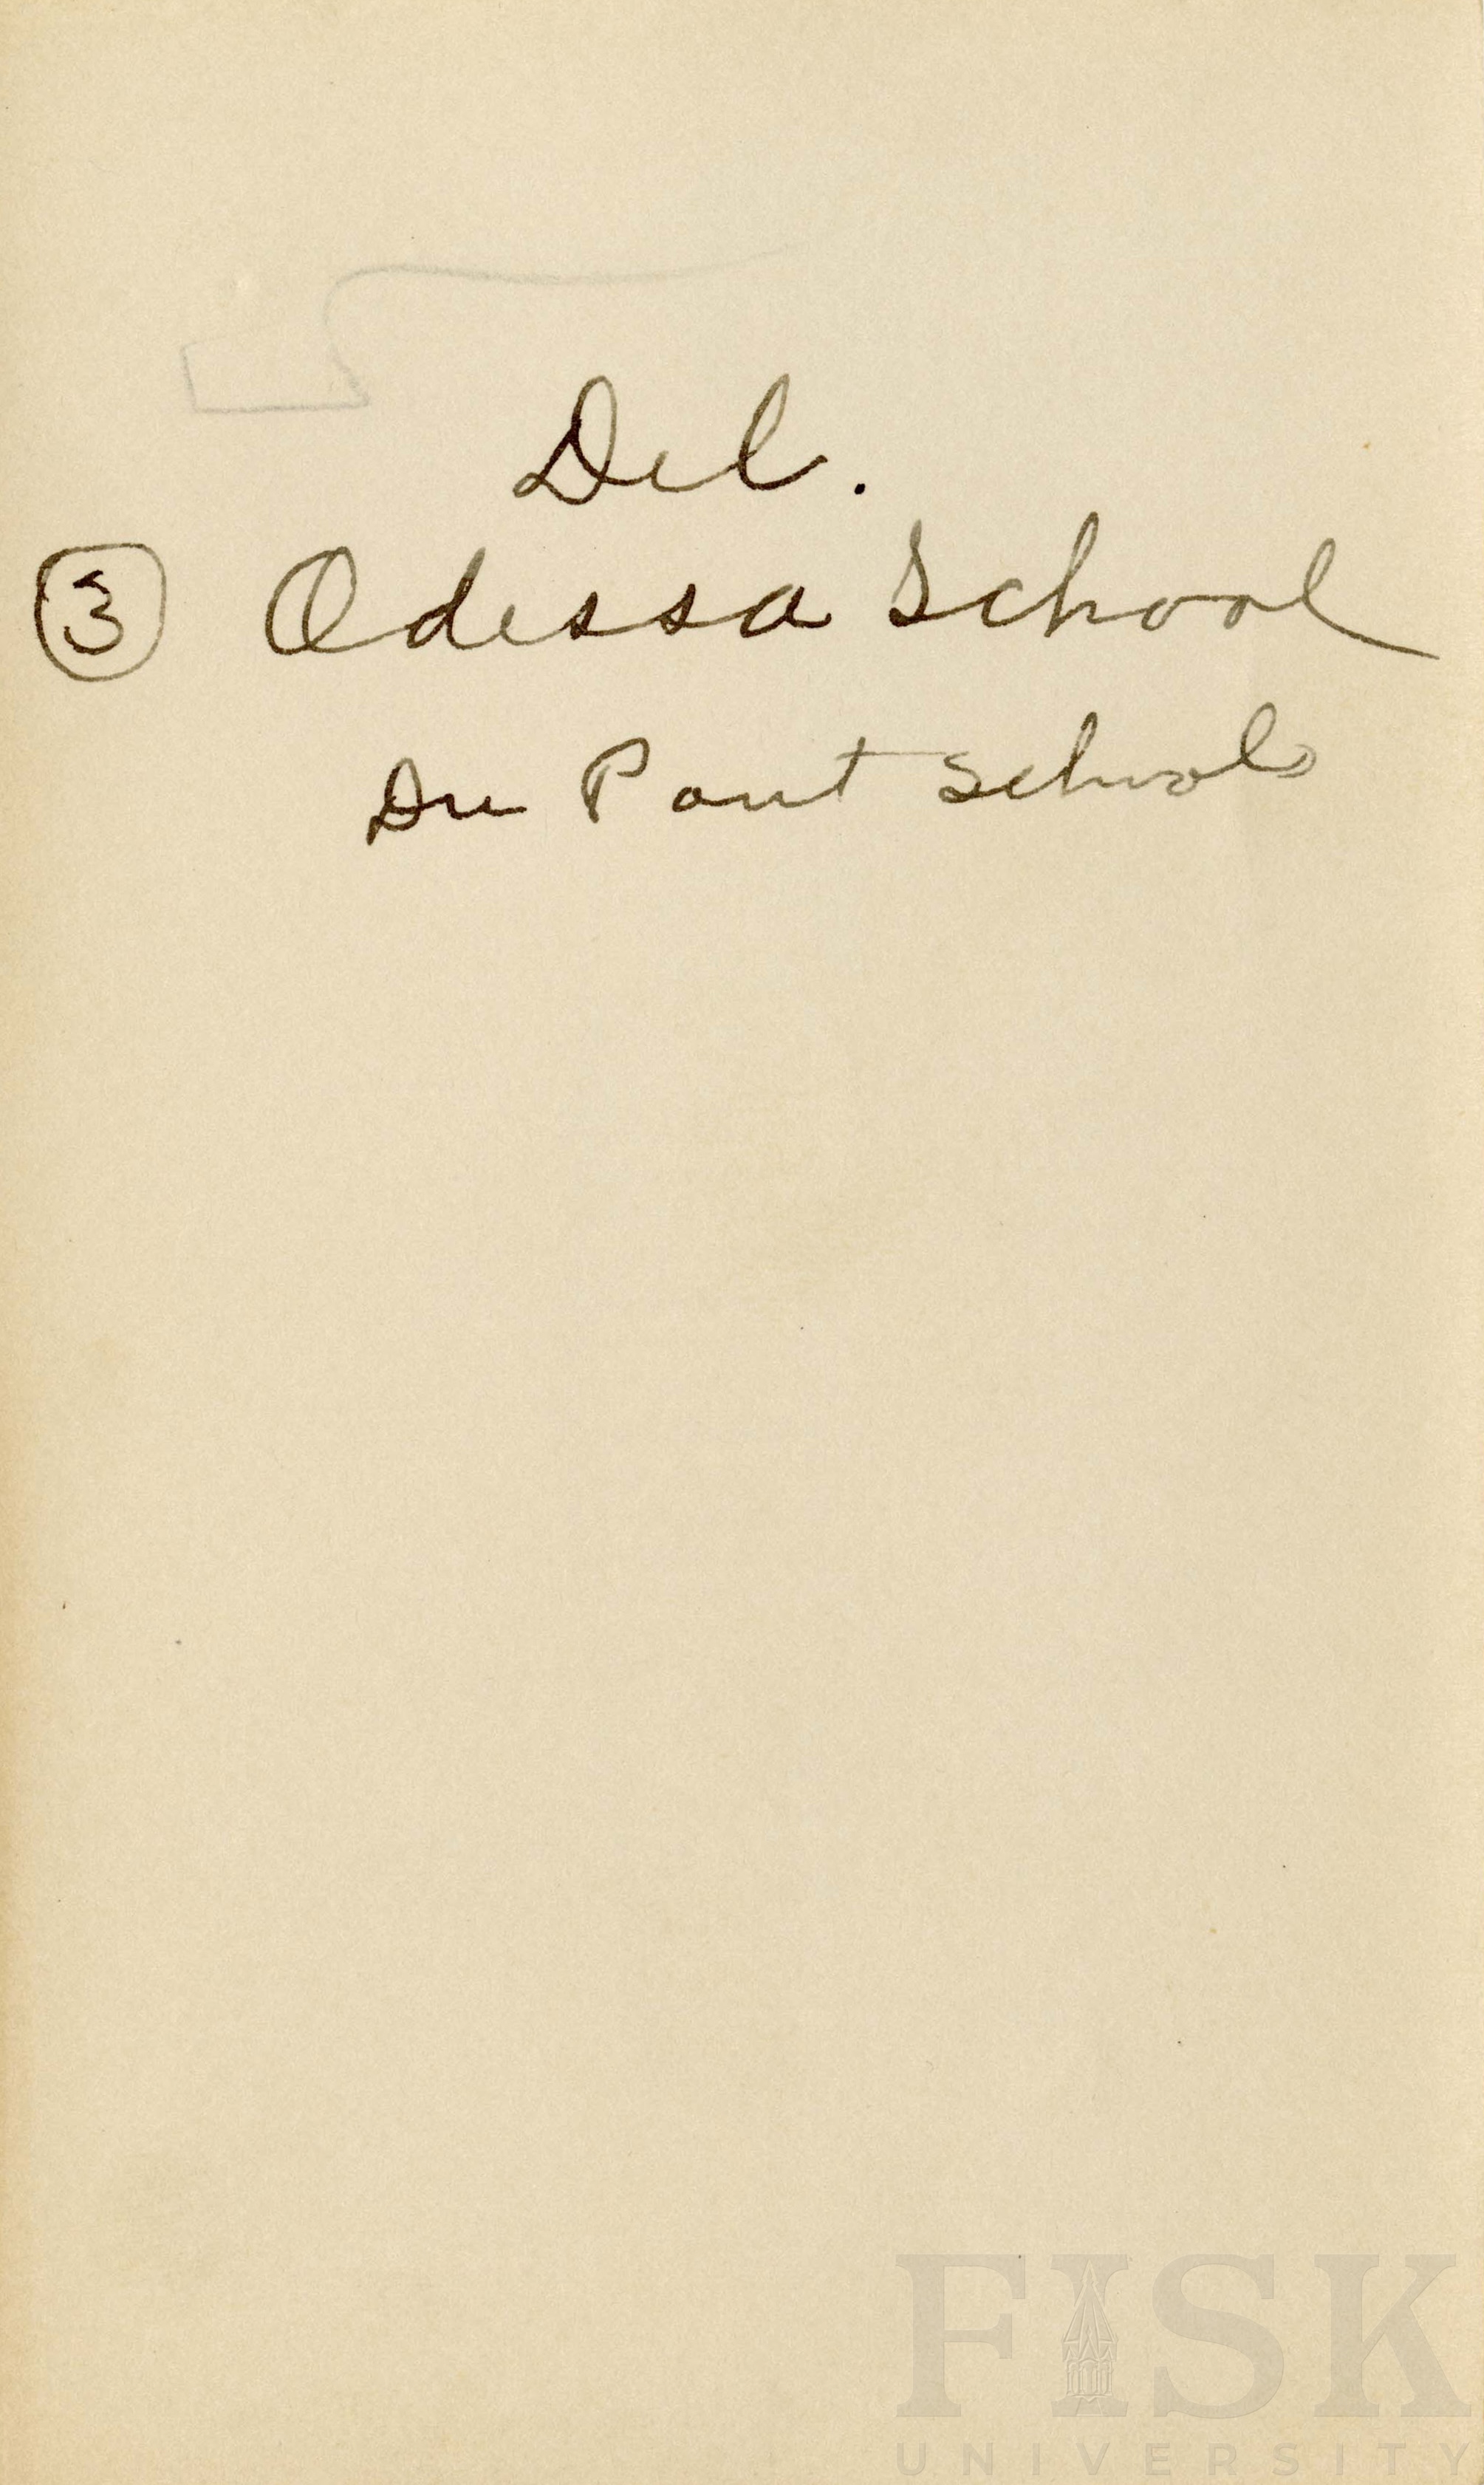 Del.
③ Odessa School
Du Pont School
FISK
UNIVERSITY